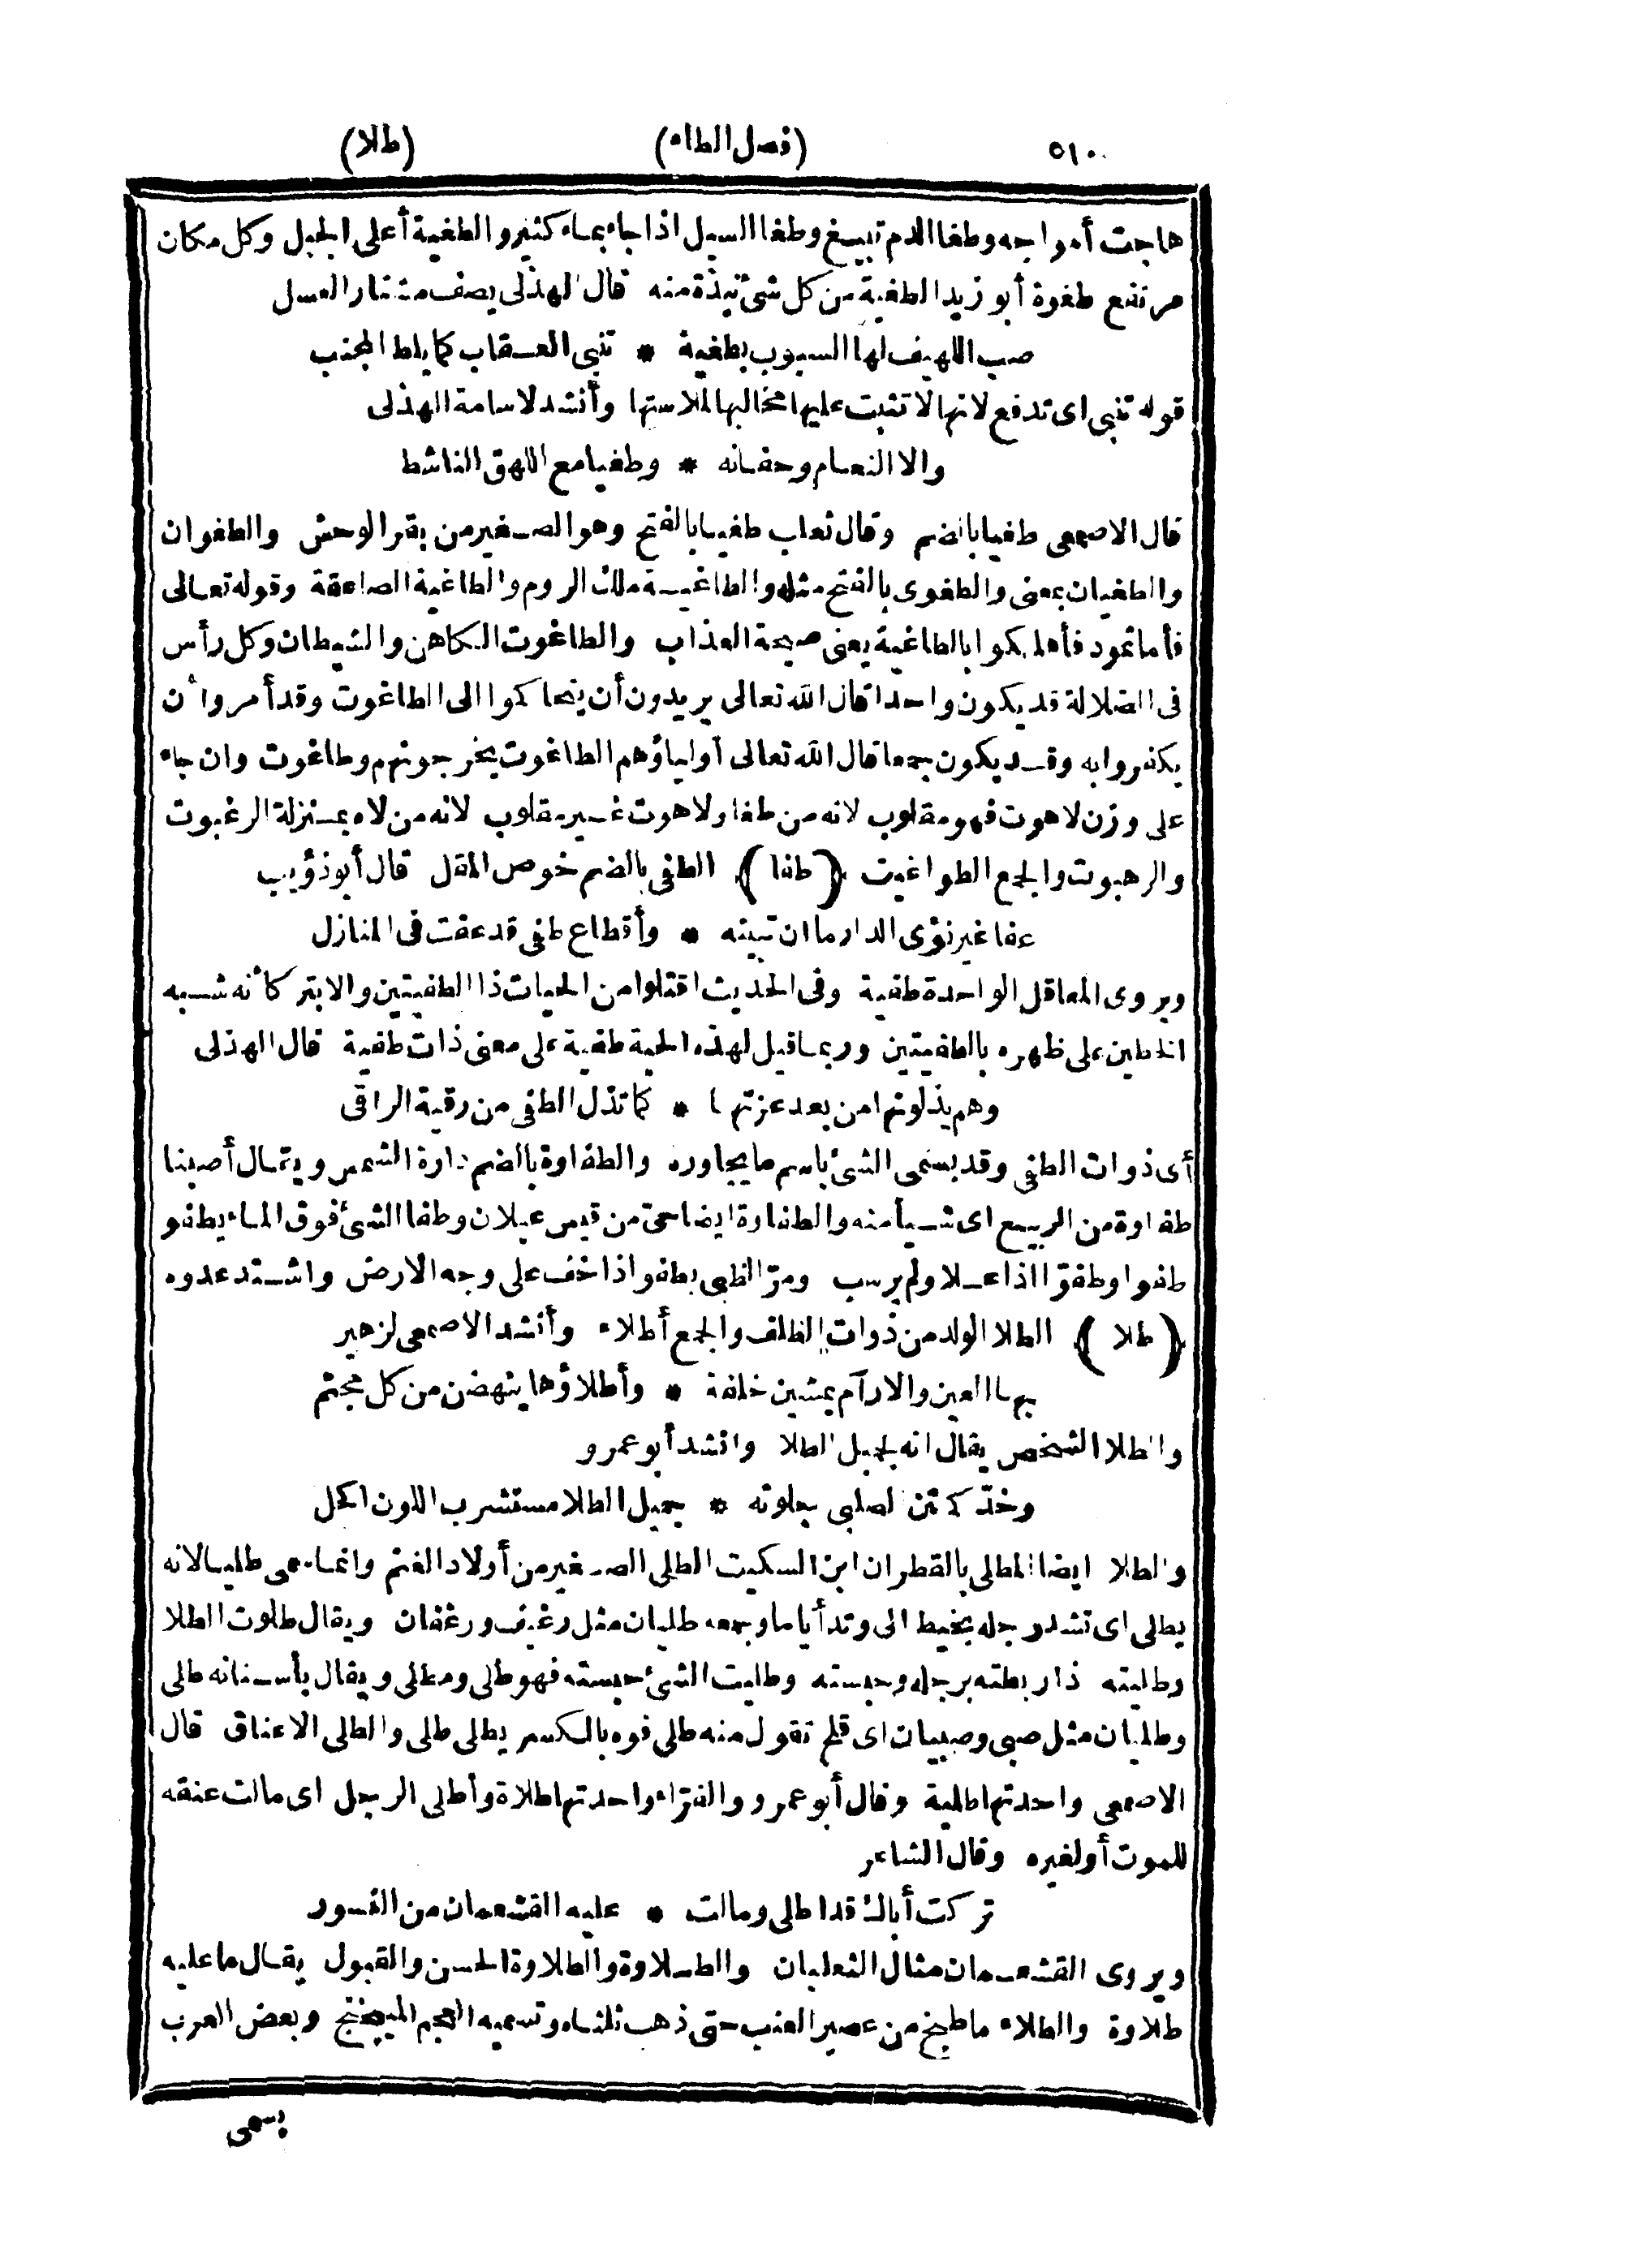 ٥١٠ (فصل الطاء) (طلا)
هاجت أمواجه وطغا الدم تبيغ وطغا السيل اذا جاء بماء كثير والطغية أعلى الجبل وكل مكان
مرتفع طغوة أبو زيد الطغية من كل شئ نبذة منه قال الهذلى يصف مشتار العسل
صب اللهيف لها السبوب بطغية * تنبى العقاب كما يلط المجنب
قوله تنبى اى تدفع لانها لا تثبت عليها مخالبها لملاستها وأنشد لاسامة الهذلى
والا النعام وحفانه * وطغيا مع اللهق الناشط
قال الاصمعى طغيا بالضم وقال ثعلب طغيا بالفتح وهو الصغير من بقر الوحش والطغوان
والطغيان بمعنى والطغوى بالفتح مثله والطاغية ملك الروم والطاغية الصاعقة وقوله تعالى
فأما ثمود فأهلكوا بالطاغية يعنى صيحة العذاب والطاغوت الكاهن والشيطان وكل رأس
فى الضلالة قد يكون واحدا قال الله تعالى يريدون أن يتحاكموا الى الطاغوت وقد أمروا أن
يكفروا به وقد يكون جمعا قال الله تعالى أولياؤهم الطاغوت يخرجونهم وطاغوت وان جاء
على وزن لاهوت فهو مقلوب لانه من طغا ولاهوت غير مقلوب لانه من لاه بمنزلة الرغبوت
والرهبوت والجمع الطواغيت ﴿طفا﴾ الطفى بالضم خوص المقل قال أبو ذؤيب
عفا غير نؤى الدار ما ان تبينه * وأقطاع طفى قد عفت فى المنازل
ويروى المعاقل الواحدة طفية وفى الحديث اقتلوا من الحيات ذا الطفيتين والابتر كأنه شبه
الخطين على ظهره بالطفيتين وربما قيل لهذه الحية طفية على معنى ذات طفية قال الهذلى
وهم يذلونها من بعد عزتها * كما تذل الطفى من رقية الراقى
أى ذوات الطفى وقد يسمى الشئ باسم ما يجاوره والطفاوة بالضم دارة الشمس ويقال أصبنا
طفاوة من الربيع اى شيأ منه والطفاوة ايضا حىّ من قيس عيلان وطفا الشئ فوق الماء يطفو
طفوا وطفوّا اذا علا ولم يرسب ومرّ الظبى يطفو اذا خف على وجه الارض واشتد عدوه
﴿طلا﴾ الطلا الولد من ذوات الظلف والجمع أطلاء وأنشد الاصمعى لزهير
بها العين والارآم يمشين خلفة * وأطلاؤها ينهضن من كل مجثم
والطلا الشخص يقال انه لجميل الطلا وانشد أبو عمرو
وخدّ كمتن الصلبى جلوته * جميل الطلا مستشرب اللون اكحل
والطلا ايضا المطلى بالقطران ابن السكيت الطلى الصغير من أولاد الغنم وانما سمى طليا لانه
يطلى اى تشد رجله بخيط الى وتد أياما وجمعه طليان مثل رغيف ورغفان ويقال طلوت الطلا
وطليته اذا ربطته برجله وحبسته وطليت الشئ حبسته فهو طلى ومطلى ويقال بأسنانه طلى
وطليان مثل صبى وصبيان اى قلح تقول منه طلى فوه بالكسر يطلى طلى والطلى الاعناق قال
الاصمعى واحدتها طلية وقال أبو عمرو والفرّاء واحدتها طلاة وأطلى الرجل اى مالت عنقه
للموت أو لغيره وقال الشاعر
تركت أباك قد اطلى ومالت * عليه القشعمان من النسور
ويروى القشعمان مثال الثعلبان والطلاوة والطلاوة الحسن والقبول يقال ما عليه
طلاوة والطلاء ما طبخ من عصير العنب حتى ذهب ثلثاه وتسميه العجم الميبختج وبعض العرب
يسمى